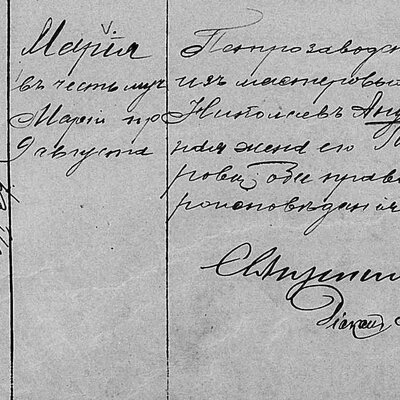 Марія
въ честь муч
Маріи пр
9 августа
Петрозаводск
изъ мастеровы
Николаевъ Анд
ная жена его
рова, обе право
роисповеданія
Діакон